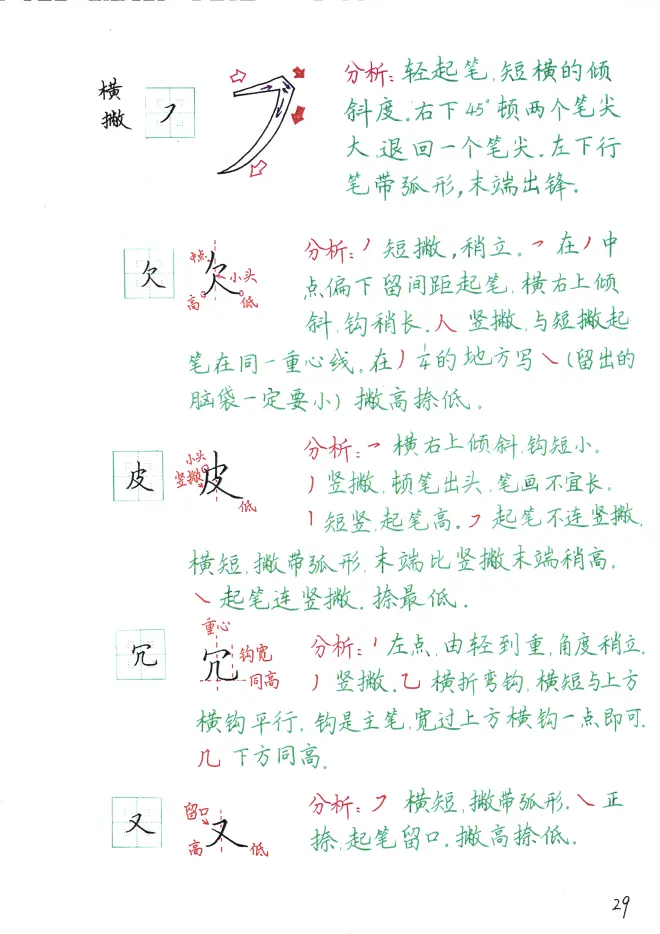 横
撇
分析:轻起笔,短横的倾
斜度。右下45°顿两个笔尖
大,退回一个笔尖。左下行
笔带弧形,末端出锋。
欠
中点
欠
小头
高
低
分析:丿短撇,稍立。乛在丿中
点偏下留间距起笔,横右上倾
斜,钩稍长。人竖撇,与短撇起
笔在同一重心线。在丿1/4的地方写㇏(留出的
脑袋一定要小)撇高捺低。
皮
小头
竖撇
皮
低
分析:乛横右上倾斜,钩短小。
丿竖撇,顿笔出头,笔画不宜长。
丨短竖,起笔高。㇇起笔不连竖撇,
横短,撇带弧形,末端比竖撇末端稍高。
㇏起笔连竖撇,捺最低。
冗
重心
冗
钩宽
同高
分析:丶左点,由轻到重,角度稍立。
丿竖撇。乙横折弯钩,横短与上方
横钩平行,钩是主笔,宽过上方横钩一点即可。
几下方同高。
又
留口
又
高
低
分析:㇇横短,撇带弧形。㇏正
捺,起笔留口。撇高捺低。
29